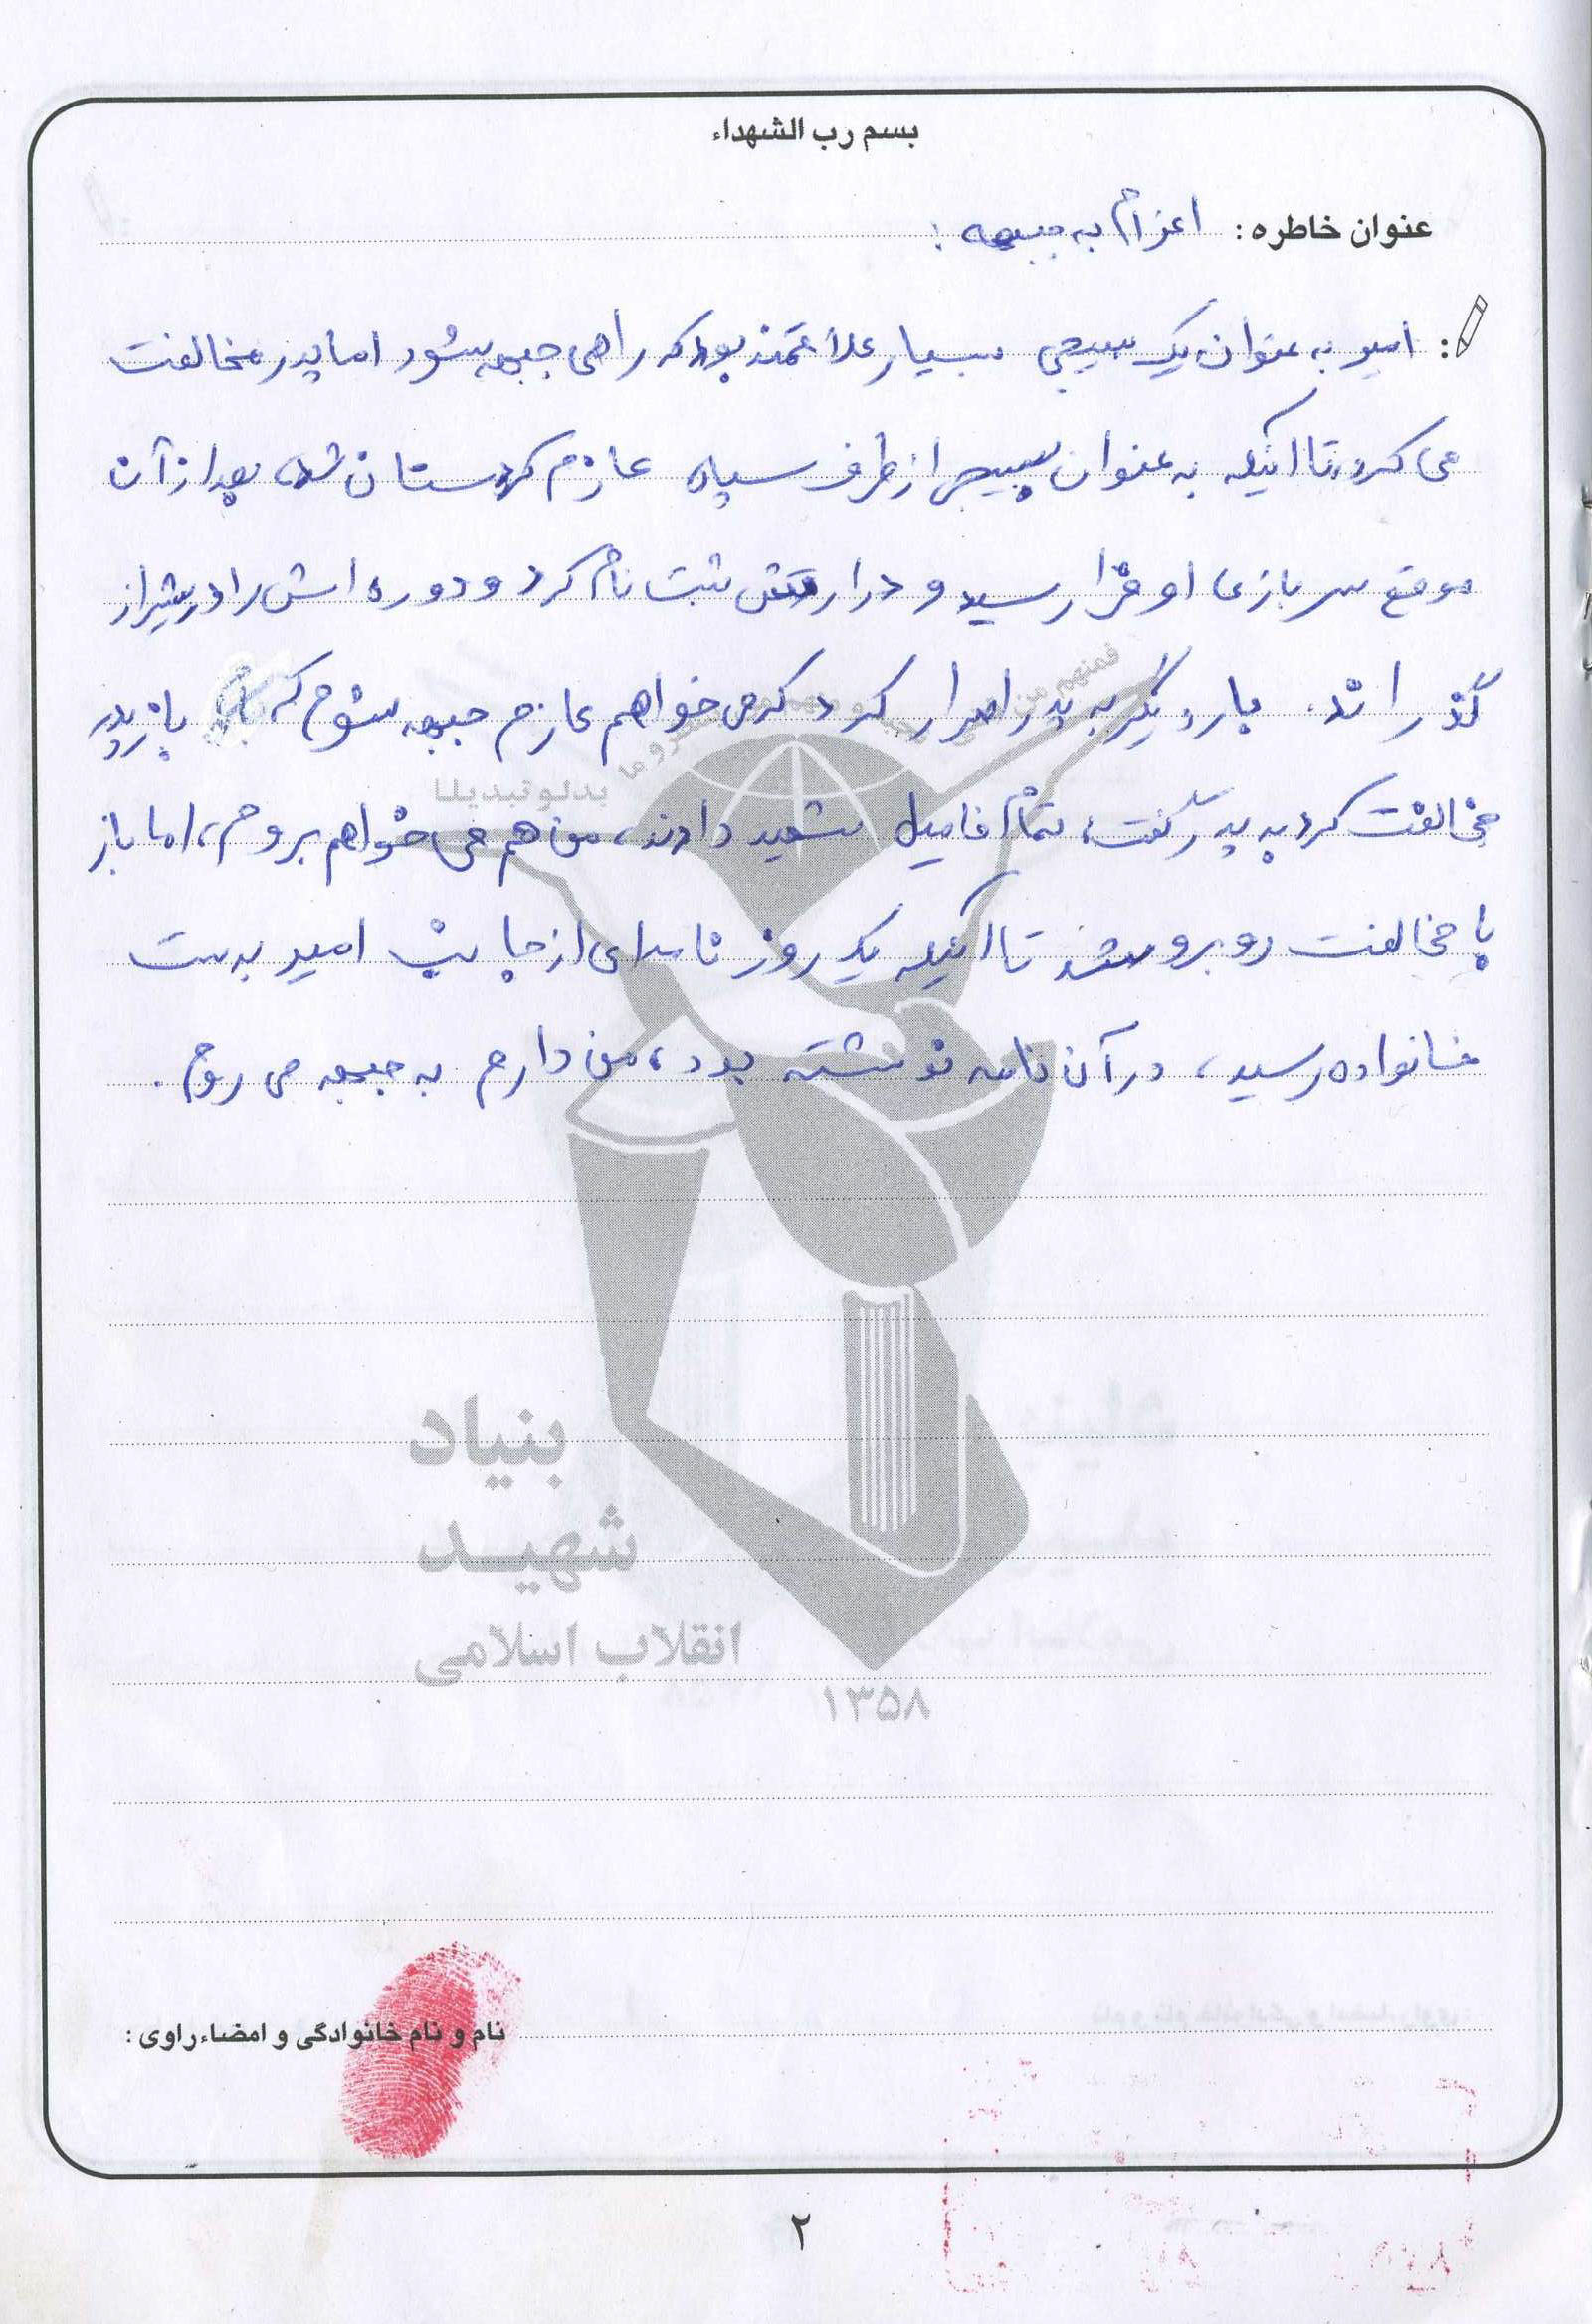 بسم رب الشهداء
عنوان خاطره : اعزام به جبهه :
: امید به عنوان یک بسیجی بسیار علاقمند بود که راهی جبهه شود اما پدر مخالفت
می کرد، تا اینکه به عنوان بسیجی از طرف سپاه عازم کردستان شد، بعد از آن
موقع سربازی او فرا رسید و در ارتش ثبت نام کرد و دوره اش را در شیراز
گذراند. بار دیگر به پدر اصرار کرد که می خواهم عازم جبهه شوم که باز پدر
مخالفت کرد به پدر گفت، تمام فامیل شهید دادند، من هم می خواهم بروم، اما باز
با مخالفت روبرو شد تا اینکه یک روز نامه ای از جانب امید به دست
خانواده رسید، در آن نامه نوشته بود، من دارم به جبهه می روم.
بدلو تبدیلا
بنیاد
شهید
انقلاب اسلامی
۱۳۵۸
نام و نام خانوادگی و امضاء راوی :
۲